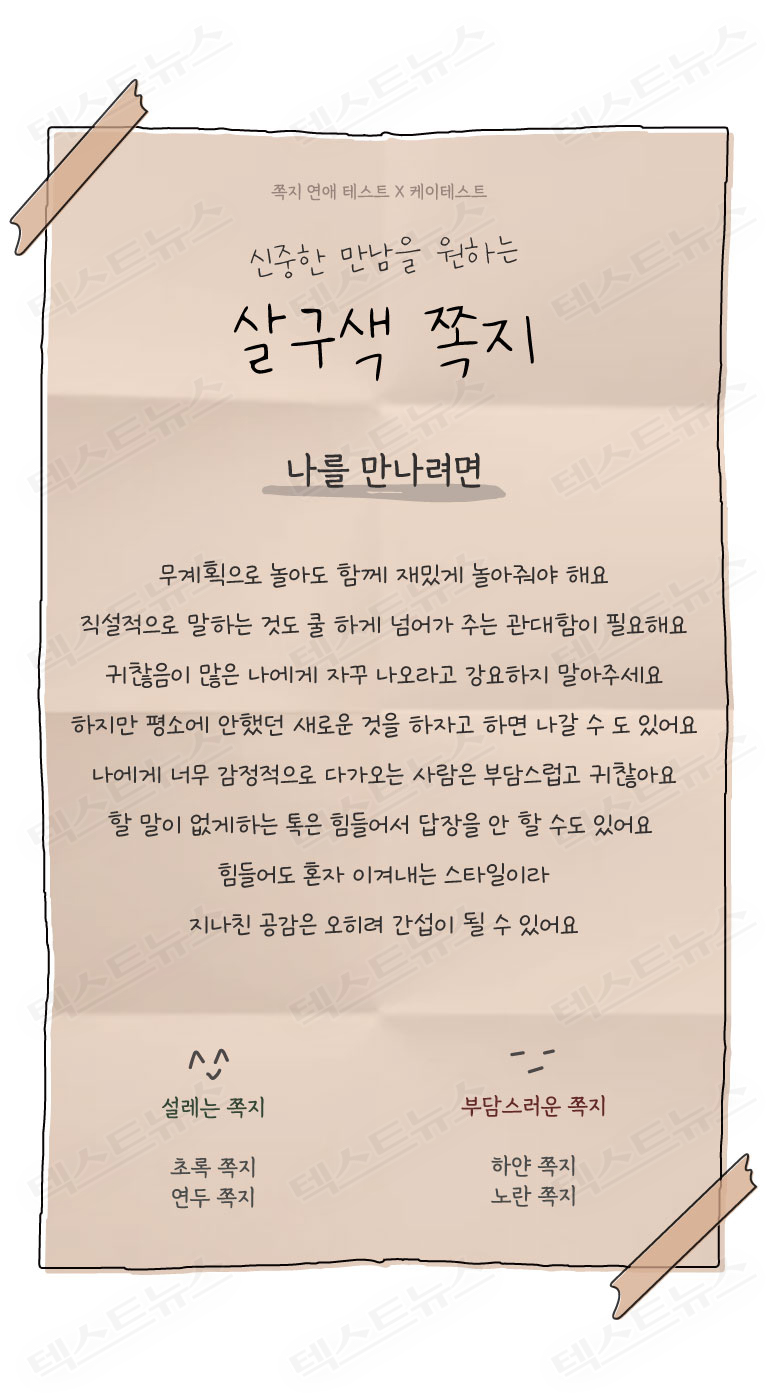 쪽지 연애 테스트 X 케이테스트
신중한 만남을 원하는
살구색 쪽지
나를 만나려면
무계획으로 놀아도 함께 재밌게 놀아줘야 해요
직설적으로 말하는 것도 쿨 하게 넘어가 주는 관대함이 필요해요
귀찮음이 많은 나에게 자꾸 나오라고 강요하지 말아주세요
하지만 평소에 안했던 새로운 것을 하자고 하면 나갈 수 도 있어요
나에게 너무 감정적으로 다가오는 사람은 부담스럽고 귀찮아요
할 말이 없게하는 톡은 힘들어서 답장을 안 할 수도 있어요
힘들어도 혼자 이겨내는 스타일이라
지나친 공감은 오히려 간섭이 될 수 있어요
설레는 쪽지
초록 쪽지
연두 쪽지
부담스러운 쪽지
하얀 쪽지
노란 쪽지
텍스트뉴스